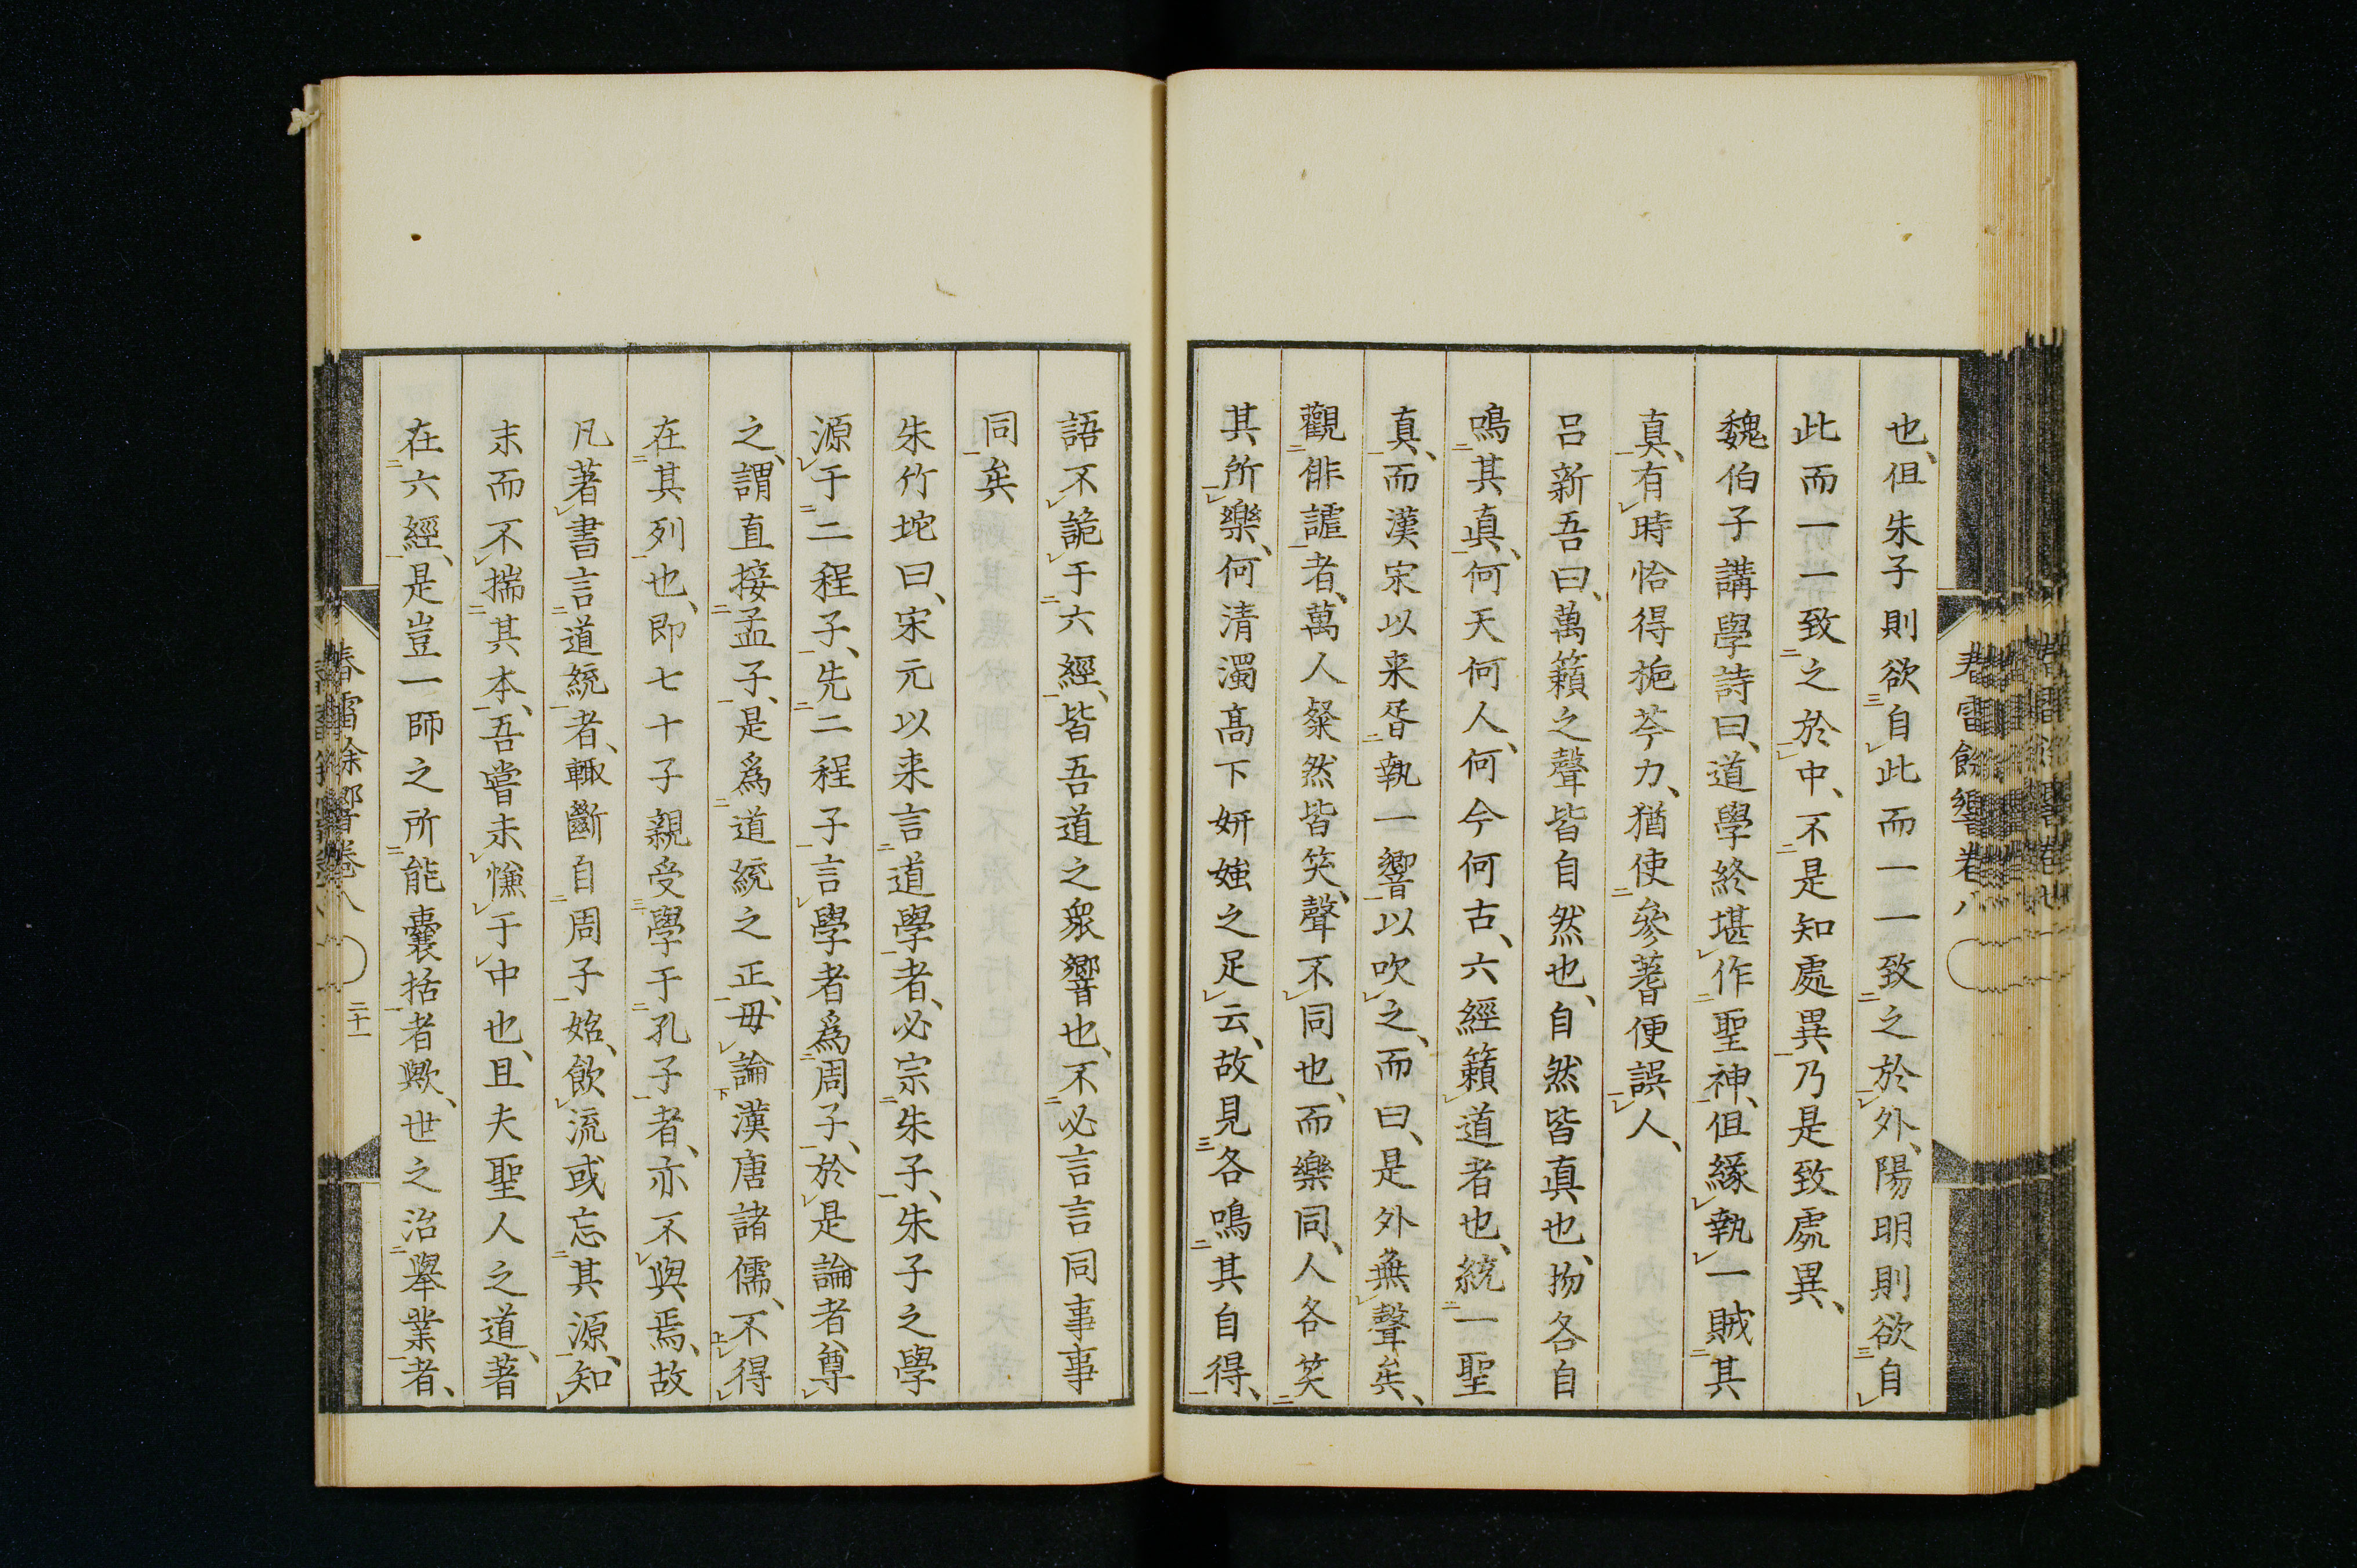 也、伹朱子則欲自此而一一致之於外、陽明則欲自
此而一一致之於中、不是知處異乃是致處異、
魏伯子講學詩曰、道學終堪作聖神、伹緣執一賊其
真、有時恰得梔苓力、猶使參蓍便誤人、
呂新吾曰、萬籟之聲皆自然也、自然皆真也、物各自
鳴其真、何天何人、何今何古、六經籟道者也、統一聖
真、而漢宋以来胥執一響以吹之、而曰、是外無聲矣、
觀俳謔者、萬人粲然皆笑、聲不同也、而樂同、人各笑
其所樂、何清濁高下妍媸之足云、故見各鳴其自得、
語不詭于六經、皆吾道之衆響也、不必言言同事事
同矣
朱竹垞曰、宋元以来言道學者、必宗朱子、朱子之學
源于二程子、先二程子言學者爲周子、於是論者尊
之、謂直接孟子、是爲道統之正、毋論漢唐諸儒、不得
在其列也、即七十子親受學于孔子者、亦不與焉、故
凡著書言道統者、輙斷自周子始、飲流或忘其源、知
末而不揣其本、吾嘗未慊于中也、且夫聖人之道、著
在六經、是豈一師之所能囊括者歟、世之治舉業者、
春雷餘響卷八
春雷餘響卷八
二十一